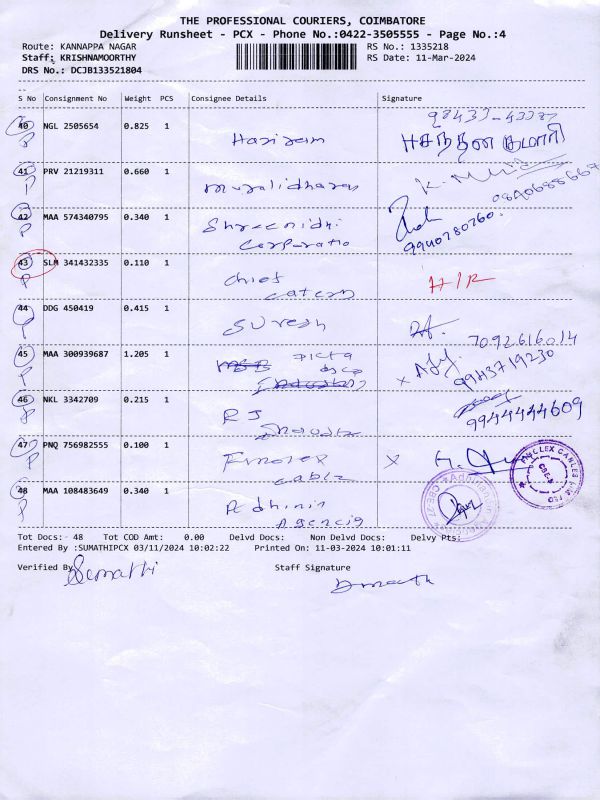 THE PROFESSIONAL COURIERS, COIMBATORE
Delivery Runsheet - PCX - Phone No.:0422-3505555 - Page No.:4
Route: KANNAPPA NAGAR
RS No.: 1335218
Staff: KRISHNAMOORTHY
RS Date: 11-Mar-2024
DRS No.: DCJB133521804
S No Consignment No Weight PCS Consignee Details Signature
40 NGL 2505654 0.825 1 Hariram
P
41 PRV 21219311 0.660 1 muralidharan
P
42 MAA 574340795 0.340 1 Shreenidhi
P Corporatio 9940780760
43 SLM 341432335 0.110 1 chief
P catery
44 DDG 450419 0.415 1 Suresh
P 7092616014
45 MAA 300939687 1.205 1
P 9943719230
46 NKL 3342709 0.215 1 RJ
P 9944444609
47 PNQ 756982555 0.100 1 Finolex
P cable
48 MAA 108483649 0.340 1
P Agencies
Tot Docs: 48 Tot COD Amt: 0.00 Delvd Docs: Non Delvd Docs: Delvy Pts:
Entered By :SUMATHIPCX 03/11/2024 10:02:22 Printed On: 11-03-2024 10:01:11
Verified By Sumathi
Staff Signature